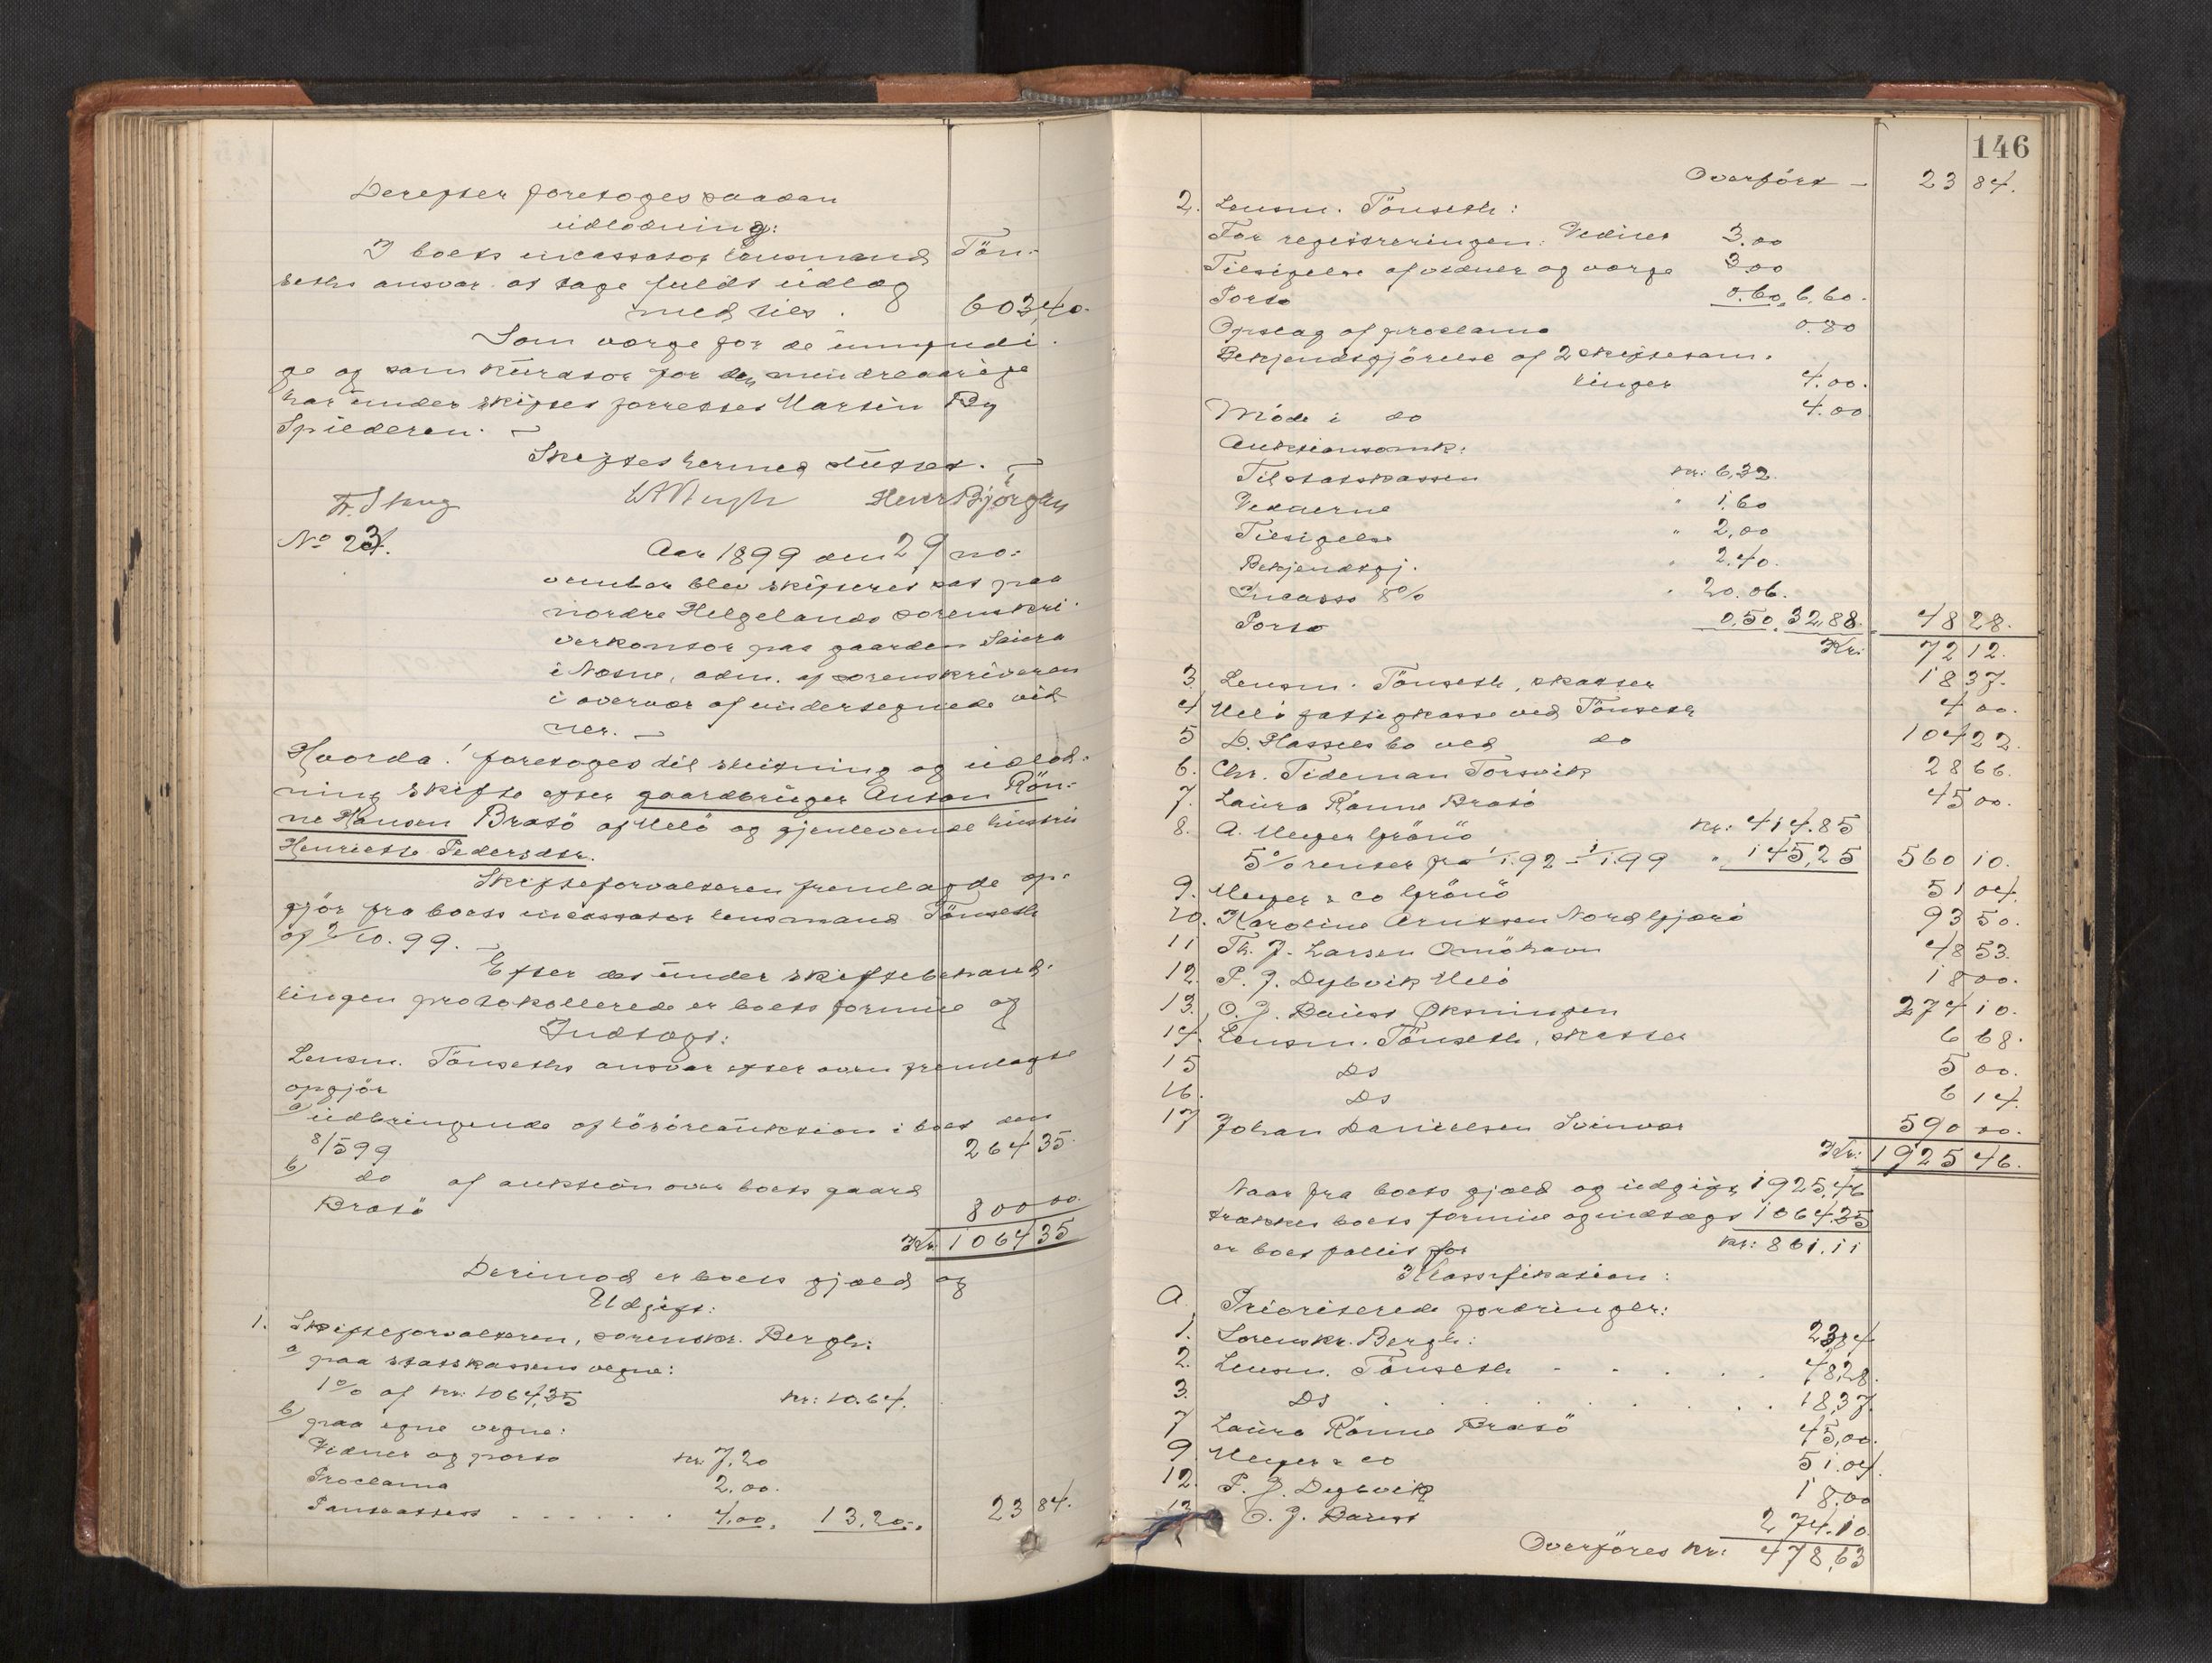 Derefter foretoges saadan
udlodning:
I boets incassator lensmand Tön-
seths ansvar at tage fuldt udlæg
med tils. 603,40.
Som værge for de umyndi-
ge og som kurator for den mindreaarige
har under skiftet forrettet Martin By
Spilderen. —
Skiftet hermed sluttet. —
F. Skog Henr Björgan
No 23.
Aar 1899 den 29 no-
vember blev skifteret sat paa
nordre Helgelands sorenskri-
verkontor paa gaarden Saura
i Nesne, adm. af sorenskriveren
i overvær af undertegnede vid-
ner. —
Hvorda! foretoges til slutning og udlod-
ning skifte efter gaardbruger Anton Rön-
ne Hansen Brasö af Melö og gjenlevende hustru
Henriette Pedersdtr.
Skifteforvalteren fremlagde op-
gjör fra boets incassator lensmand Tönseth
af 2/10.99. —
Efter det under skiftebehand-
lingen protokollerede er boets formue og
Indtægt:
Lensm. Tönseths ansvar efter ovennt fremlagte
opgjör
a) udbringende af lösöreauktion i boet den
8/5 99 264 35.
b) do af auktion over boets gaard
Brasö 800 00.
Kr. 1064 35
Derimod er boets gjæld og
Udgift:
1. Skifteforvalteren, sorenskr. Bergh:
a) paa statskassens vegne:
1% af kr: 1064,35 kr: 10.64.
b) paa egne vegne:
Vidner og porto kr. 7.20
Proclama 2.00.
Panteattest . . . . . . 4.00. 13.20. 23 84.
146
Overfört — 23 84.
2. Lensm. Tönseth:
For registreringen: Vedines 3.00
Tilsigelse af vidner og værge 3.00
Porto 0.60. 6.60.
Opslag af proclama 0.80
Bekjendtgjörelse af 2 skiftesam-
linger 4.00.
Möde i do 4.00
Auktionsomk:
Til statskassen kr: 6,32.
Vidnerne " 1,60
Tilsigelse " 2,00
Bekjendtgj. " 2.40.
Incasso 8% " 20.06.
Porto 0,50. 32,88. 48 28.
Kr: 72 12.
3. Lensm. Tönseth, skatter 18 37.
4. Melö fattigkasse ved Tönseth 4 00.
5 D. Hasselbo ved do 104 22.
6. Chr. Tideman Torsvik 28 66.
7. Laura Rönne Brasö 45 00.
8. A. Meyer Grönö kr: 414.85
5% renter fra 1/1.92 - 1/1.99 " 145,25 560 10.
9. Meyer & co Grönö 51 04.
10. Karoline Arntsen Nord Gjærö 93 50.
11 Th. J. Larsen Omöhavn 48 53.
12. P. J. Dybvik Melö 18 00.
13. O. J. Buust Öksningen 274 10.
14. Lensm. Tönseth, skatter 6 68.
15 Ds 5 00.
16. Ds 6 14.
17 Johan Danielsen Svinvær 590 00.
Kr: 1925 46.
Naar fra boets gjæld og udgift 1925,46
trækkes boets formue og indtægt 1064.35
er boet fallit for kr: 861.11
Klassifikation:
A Prioriterede fordringer:
1. Sorenskr. Bergh: 23,84
2. Lensm. Tönseth - . . . 48,28.
3. Ds . . . . . . . . 18,37.
7 Laura Rönne Brasö 45,00.
9. Meyer & co 51.04.
12. P. J. Dybvik 18.00
13 O. J. Buust 274.10
Overföres kr: 478,63